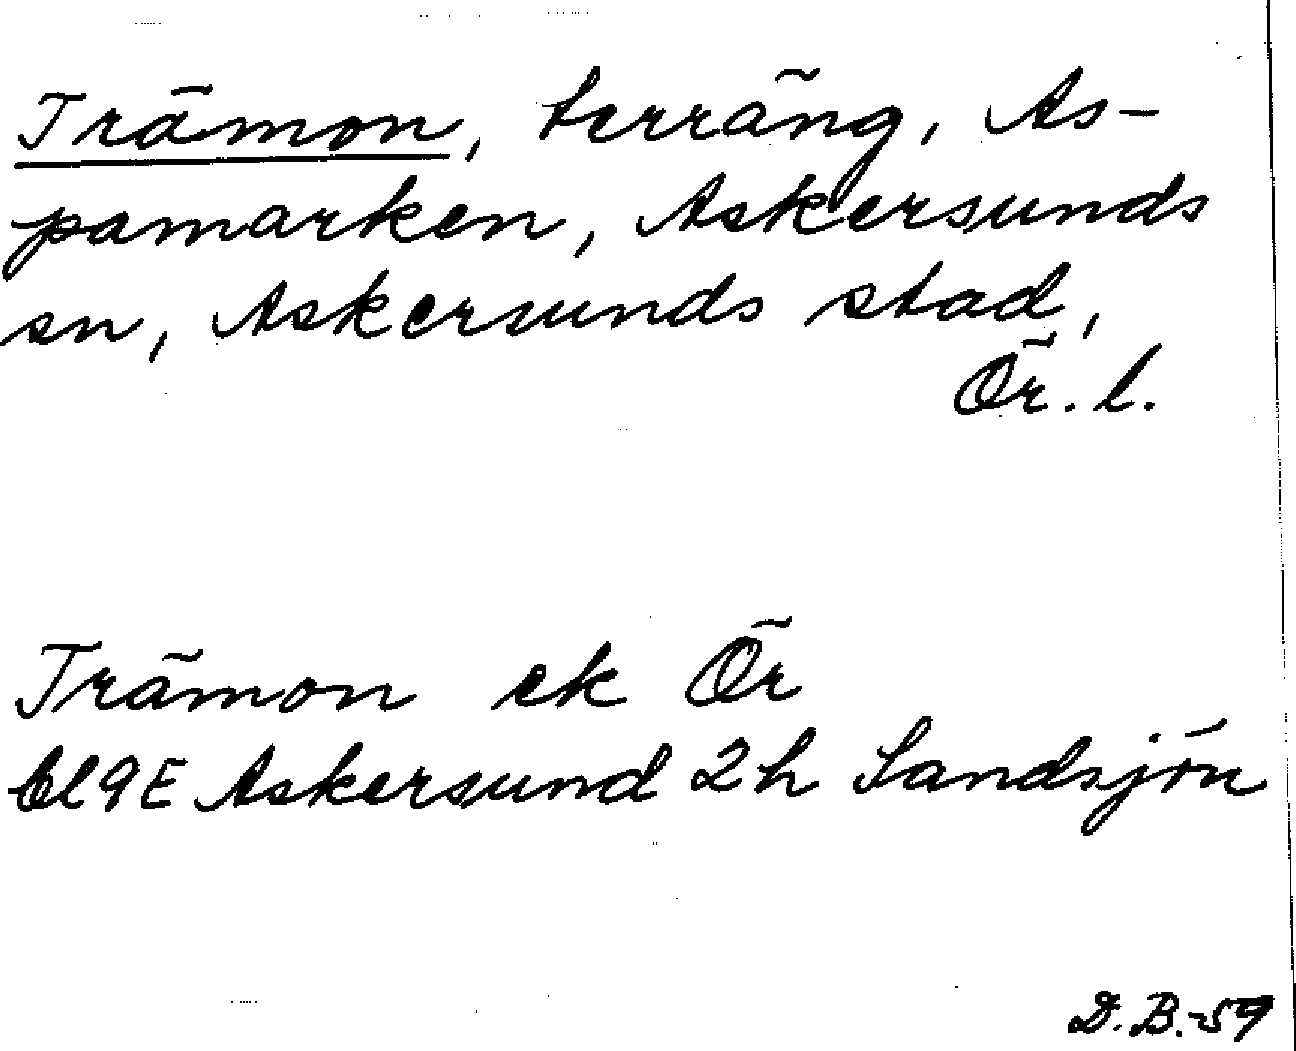 Trämon, terräng, As-
pamarken, Askersunds
sn, Askersunds stad,
Ör. l.
Trämon ek Ör
bl 9E Askersund 2h Sandsjön
D.B.-59